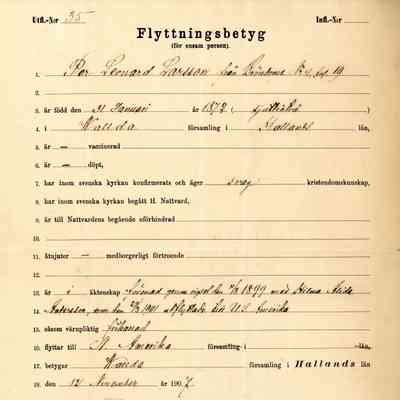 Utfl.-N:r 35 Infl.-N:r
Flyttningsbetyg
(för ensam person).
1. Per Leonard Larsson från N:4, 19
2.
3. är född den 31 Januari år 1872 ( sjuttiotvå )
4. i Wallda församling i Hallands län,
5. är — vaccinerad
6. är — döpt,
7. har inom svenska kyrkan konfirmerats och äger svag kristendomskunskap,
8. har inom svenska kyrkan begått H. Nattvard,
9. är till Nattvardens begående oförhindrad
10.
11. åtnjuter — medborgerligt förtroende
12.
13. är i äktenskap förenad genom vigsel den 1899 med Hilma
14. som den 1901 utflyttade till U.S. Amerika
15. eksom värnpliktig frikänad
16. flyttar till N. Amerika församling i län,
17. betygar Wallda församling i Hallands län
18. den 12 November år 1907.